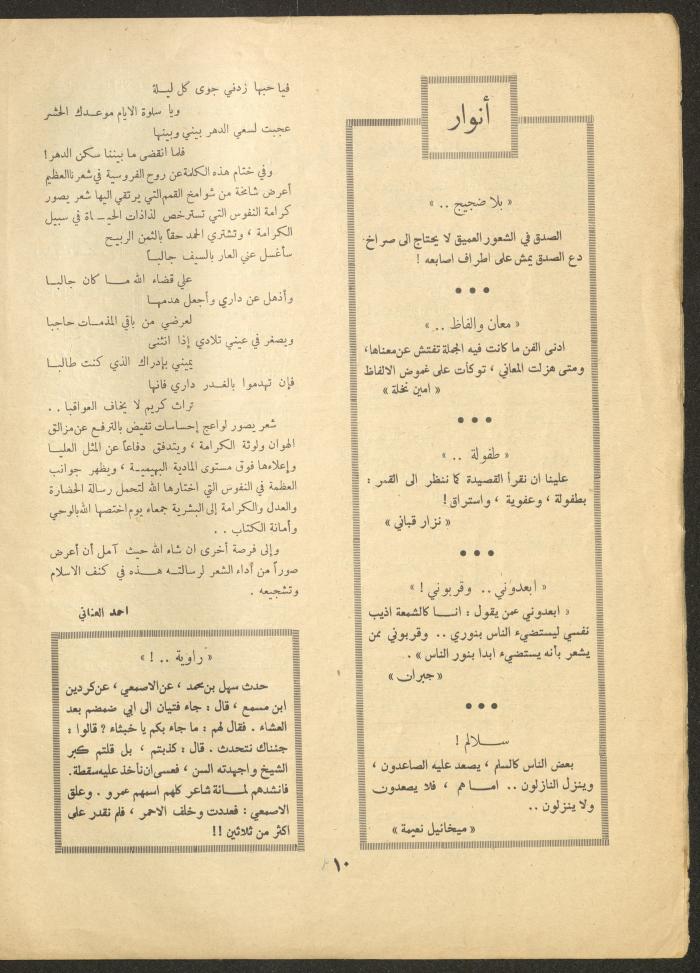 أنوار
« بلا ضجيج .. »
الصدق في الشعور العميق لا يحتاج الى صراخ.
دع الصدق يمش على اطراف اصابعه !
• • •
« معان والفاظ .. »
ادنى الفن ما كانت فيه الجملة تفتش عن معناها،
ومتى هزلت المعاني ، توكأت على غموض الالفاظ
« امين نخلة »
• • •
« طفولة .. »
علينا ان نقرأ القصيدة كما ننظر الى القمر :
بطفولة ، وعفوية ، واستراق !
« نزار قباني »
• • •
« ابعدوني .. وقربوني ! »
« ابعدوني عمن يقول : انـــا كالشمعة اذيب
نفسي ليستضيء الناس بنوري .. وقربوني ممن
يشعر بأنه يستضيء ابدا بنور الناس » .
« جبران »
• • •
ســلالم !
بعض الناس كالسلم ، يصعد عليه الصاعدون ،
وينزل النازلون .. امـا هم ، فلا يصعدون
ولا ينزلون ..
« ميخائيل نعيمة »
فيا حبها زدني جوى كل ليـلة
ويا سلوة الايام موعـدك الحشر
عجبت لسعي الدهر بيني وبينها
فلما انقضى ما بيننا سكن الدهر!
وفي ختام هذه الكلمة عن روح الفروسية في شعرنا العظيم
أعرض شامخة من شوامخ القمم التي يرتقي اليها شعر يصور
كرامة النفوس التي تسترخص لذاذات الحيـاة في سبيل
الكرامة ، وتشتري الحمد حقاً بالثمن الربيح
سأغسل عني العار بالسيف جالبـاً
علي قضاء الله مــا كان جالبـا
وأذهل عن داري وأجعل هدمهـا
لعرضي من باقي المذمـات حاجبا
ويصغر في عيني تلادي إذا انثنى
يميني بإدراك الذي كنت طالبـا
فإن تهدموا بالغـدر داري فانها
تراث كريم لا يخاف العواقبا ..
شعر يصور لواعج إحساسات تفيض بالترفع عن مزالق
الهوان ولوثة الكرامة ، وبتدفق دفاعاً عن المثل العليـا
وإعلاءها فوق مستوى المادية البهيميـة ، ويظهر جوانب
العظمة في النفوس التي اختارها الله لتحمل رسالة الحضارة
والعدل والكرامة إلى البشرية جمعاء يوم اختصها الله بالوحي
وأمانة الكتاب ..
وإلى فرصة أخرى ان شاء الله حيث آمل أن أعرض
صوراً من أداء الشعر لرسالتـه هـــذه في كنف الاسلام
وتشجيعه .
احمد العناني
« راوية .. ! »
حدث سهل بن محمد ، عن الاصمعي ، عن كردين
ابن مسمع ، قال : جاء فتيان الى ابي ضمضم بعد
العشاء . فقال لهم : ما جاء بكم يا خبثاء ؟ قالوا :
جئناك نتحدث . قال : كذبتم ، بل قلتم كبر
الشيخ واجهدته السن ، فعسى ان نأخذ عليه سقطة.
فانشدهم لمـائة شاعر كلهم اسمهم عمرو . وعلق
الاصمعي : فعددت وخلف الاحمر ، فلم نقدر على
اكثر من ثلاثين !!
١٠